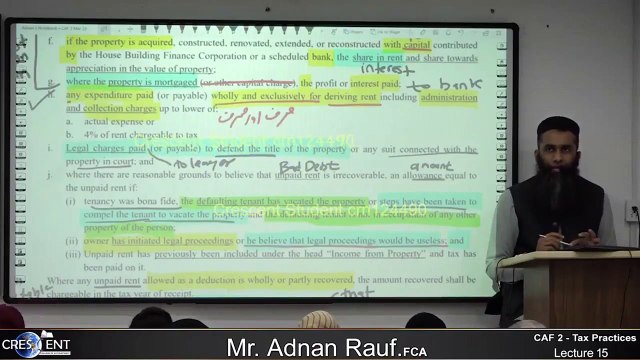 f. if the property is acquired, constructed, renovated, extended, or reconstructed with capital contributed
by the House Building Finance Corporation or a scheduled bank, the share in rent and share towards
appreciation in the value of property;
interest
g. where the property is mortgaged (or other capital charge), the profit or interest paid; to bank
h. any expenditure paid (or payable) wholly and exclusively for deriving rent including administration
and collection charges up to lower of:
صرف اور صرف
a. actual expense or
b. 4% of rent chargeable to tax
i. Legal charges paid (or payable) to defend the title of the property or any suit connected with the
property in court; and
to lawyer Bad Debt amount
j. where there are reasonable grounds to believe that unpaid rent is irrecoverable, an allowance equal to the
unpaid rent if:
(i) tenancy was bona fide, the defaulting tenant has vacated the property or steps have been taken to
compel the tenant to vacate the property and the defaulting tenant is not in occupation of any other
property of the person;
(ii) owner has initiated legal proceedings or he believe that legal proceedings would be useless; and
(iii) Unpaid rent has previously been included under the head "Income from Property" and tax has
been paid on it.
Where any unpaid rent allowed as a deduction is wholly or partly recovered, the amount recovered shall be
chargeable in the tax year of receipt.
table that
CRESCENT
Mr. Adnan Rauf.FCA
CAF 2 - Tax Practices
Lecture 15